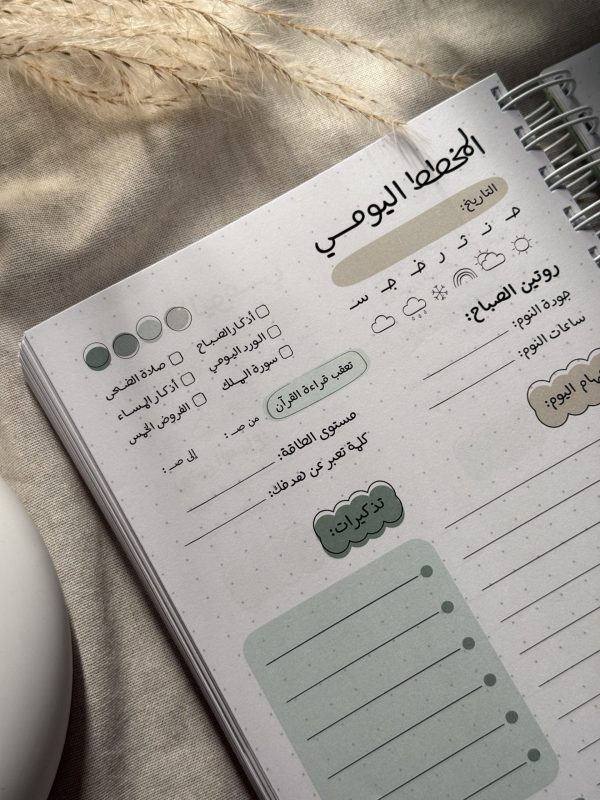 المخطط اليومي
التاريخ:
ح ن ث ر خ ج س
روتين الصباح:
جودة النوم:
ساعات النوم:
أذكار الصباح
الورد اليومي
سورة الملك
صلاة الضحى
أذكار المساء
الفروض الخمس
تعقب قراءة القرآن
من صـ: إلى صـ:
مستوى الطاقة:
كلمة تعبر عن هدفك:
مهام اليوم:
تذكيرات: